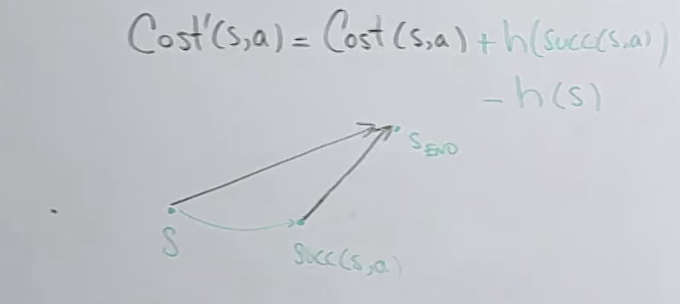 Cost'(s,a) = Cost(s,a) + h(succ(s,a))
- h(s)
S_END
S
succ(s,a)